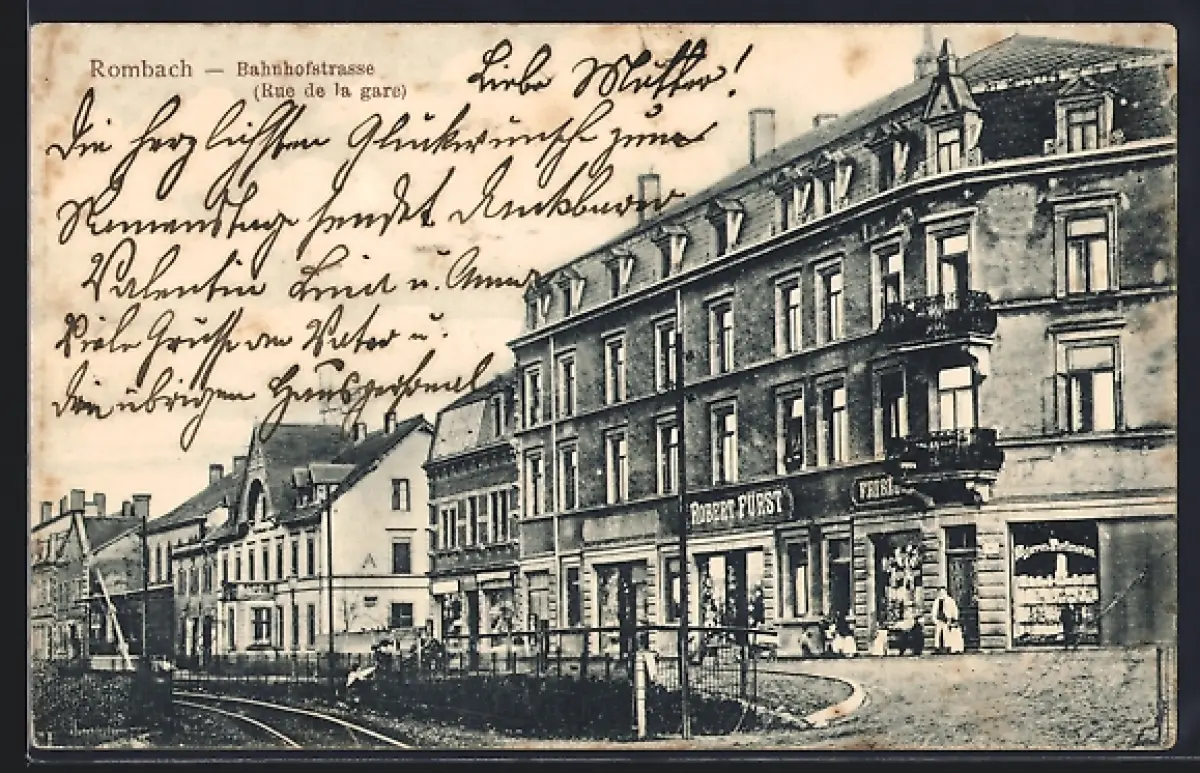 Rombach — Bahnhofstrasse
(Rue de la gare)
Liebe Mutter!
Die herzlichsten Glückwünsche zum
Namenstage sendet
Valentin u. Anna
Viele Grüsse an Vater u.
den übrigen Hauspersonal
ROBERT FÜRST